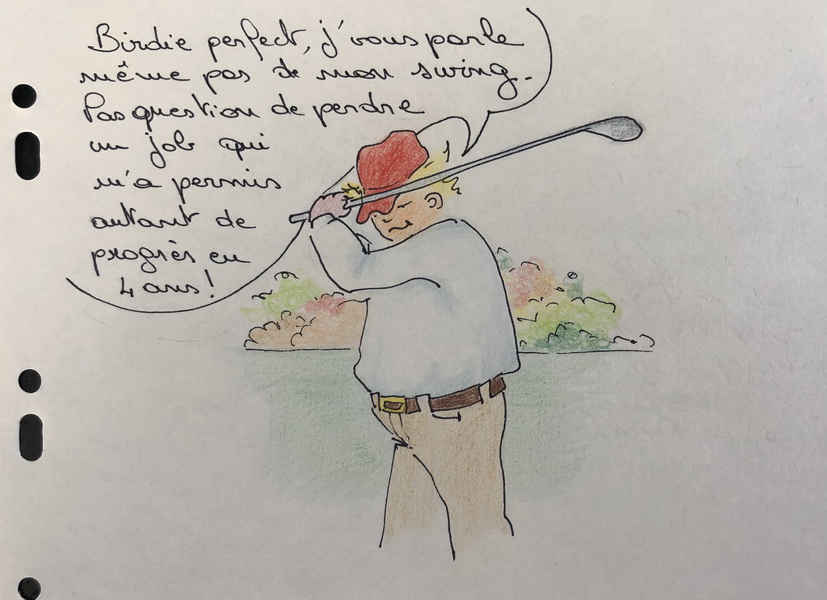 Birdie perfect, j'vous parle
même pas de mon swing.
Pas question de perdre
un job qui
m'a permis
autant de
progrès en
4 ans !